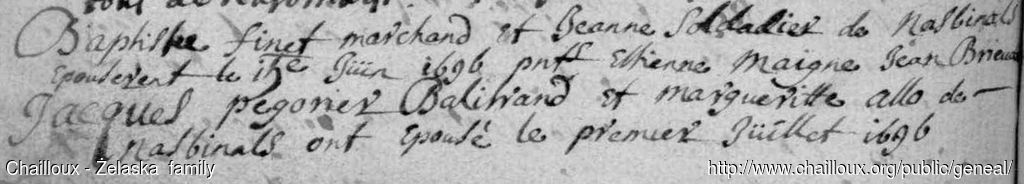 Baptiste finet marchand et Jeanne Soldadier de Nasbinals
Epouserent le 15e Jüin 1696 pnts Estienne Maigne Jean
Jacques pegorier Balitrand et margueritte allo de
Nasbinals ont Epousé le premier Jüillet 1696
Chailloux - Żelaska family
http://www.chailloux.org/public/geneal/